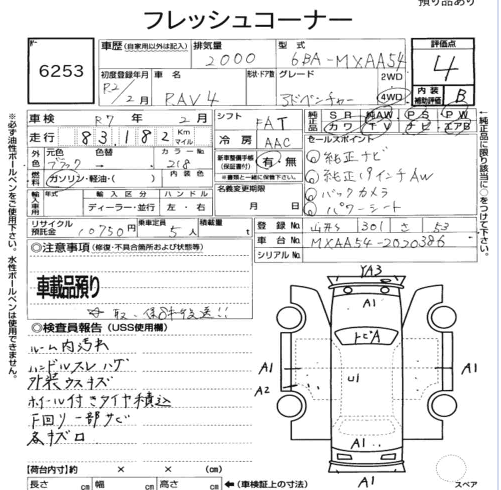 預り品あり
フレッシュコーナー
6253
車歴 (自家用以外は記入) 排気量 2000 型式 6BA-MXAA54
評価点 4
初度登録年月 R2/2月 車名 RAV4 形状・ドア数 グレード アドベンチャー 2WD 4WD
内装補助評価 B
車検 R7年2月 シフト FAT 純正品 SR 純AW PS PW
走行 83,182 Km マイル 冷房 AAC カワ TV ナビ エアB
外色 元色 ブラック → 色替 カラーNo. 218
燃料 ガソリン・軽油・( ) 内装色
新車整備手帳(保証書付) 有・無
※書類と一緒に保管下さい。
セールスポイント
①純正ナビ
②純正19インチAW
③バックカメラ
④パワーシート
輸入車用 年式 輸入区分 ハンドル
ディーラー・並行 左・右
名義変更期限 月 日
リサイクル預託金 10750円 乗車定員 5人 積載量 t
登録No. 301 さ 53
車台No. MXAA54-2020386
シリアルNo.
◎注意事項 (修復・不具合箇所および状態等)
車載品預り
☆取、保、後送!!
◎検査員報告 (USS使用欄)
ルーム内汚れ
ハンドルスレ ハゲ
外装ウスキズ
ホイール付きタイヤ積込
下回り一部サビ
各キズロ
【荷台内寸】約 × × (cm)
長さ cm 幅 cm 高さ cm ←(車検証上の寸法)
YA3
A1
トビA
A1
A2
U1
A1
A1
A1
スペア
※必ず油性ボールペンをご使用下さい。水性ボールペンは使用できません。
←純正品に限り該当に○をつけて下さい。